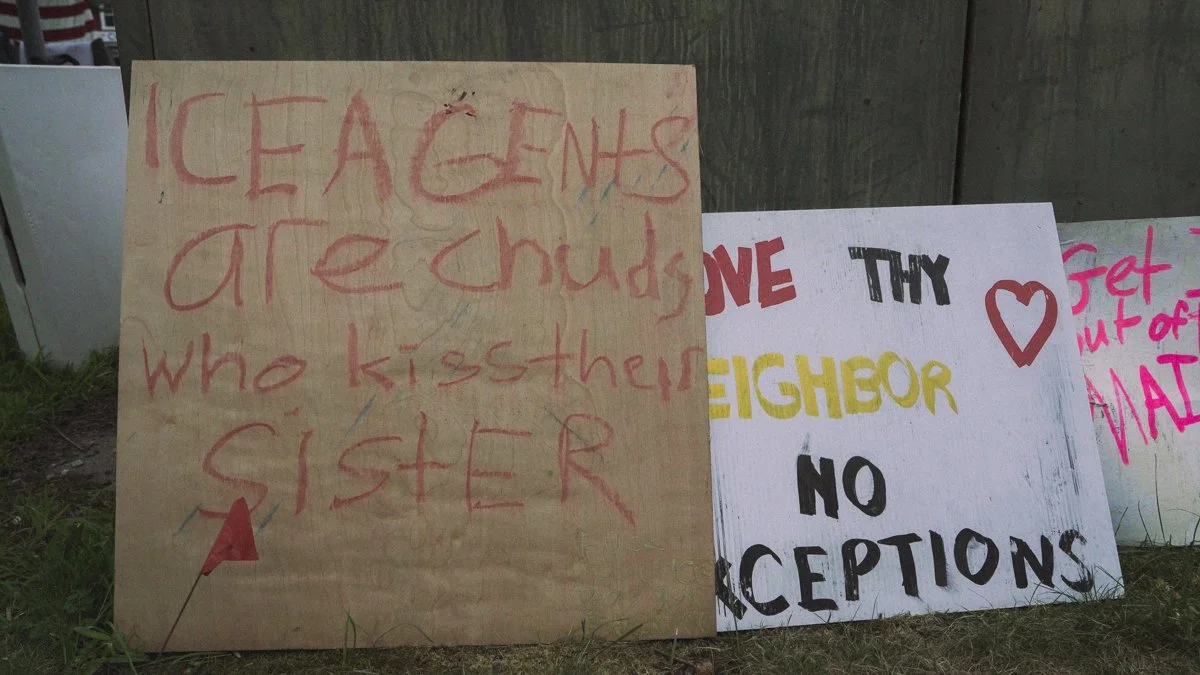 ICE AGENtS
are chuds
who kiss their
SiStER
OVE THY
EIGHBOR
NO
XCEPTIONS
Get
out of
MAI